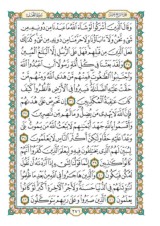 وقال الذين أشركوا لو شاء الله ما عبدنا من دونه من
شيء نحن ولا آباؤنا ولا حرمنا من دونه من شيء كذلك
فعل الذين من قبلهم فهل على الرسل إلا البلاغ المبين
ولقد بعثنا في كل أمة رسولا أن اعبدوا الله
واجتنبوا الطاغوت فمنهم من هدى الله ومنهم من
حقت عليه الضلالة فسيروا في الأرض فانظروا كيف
كان عاقبة المكذبين إن تحرص على هداهم
فإن الله لا يهدي من يضل وما لهم من ناصرين
وأقسموا بالله جهد أيمانهم لا يبعث الله من يموت بلى
وعدا عليه حقا ولكن أكثر الناس لا يعلمون
ليبين لهم الذي يختلفون فيه وليعلم الذين كفروا أنهم
كانوا كاذبين إنما قولنا لشيء إذا أردناه أن نقول له
كن فيكون والذين هاجروا في الله من بعد ما ظلموا
لنبوئنهم في الدنيا حسنة ولأجر الآخرة أكبر لو كانوا
يعلمون الذين صبروا وعلى ربهم يتوكلون